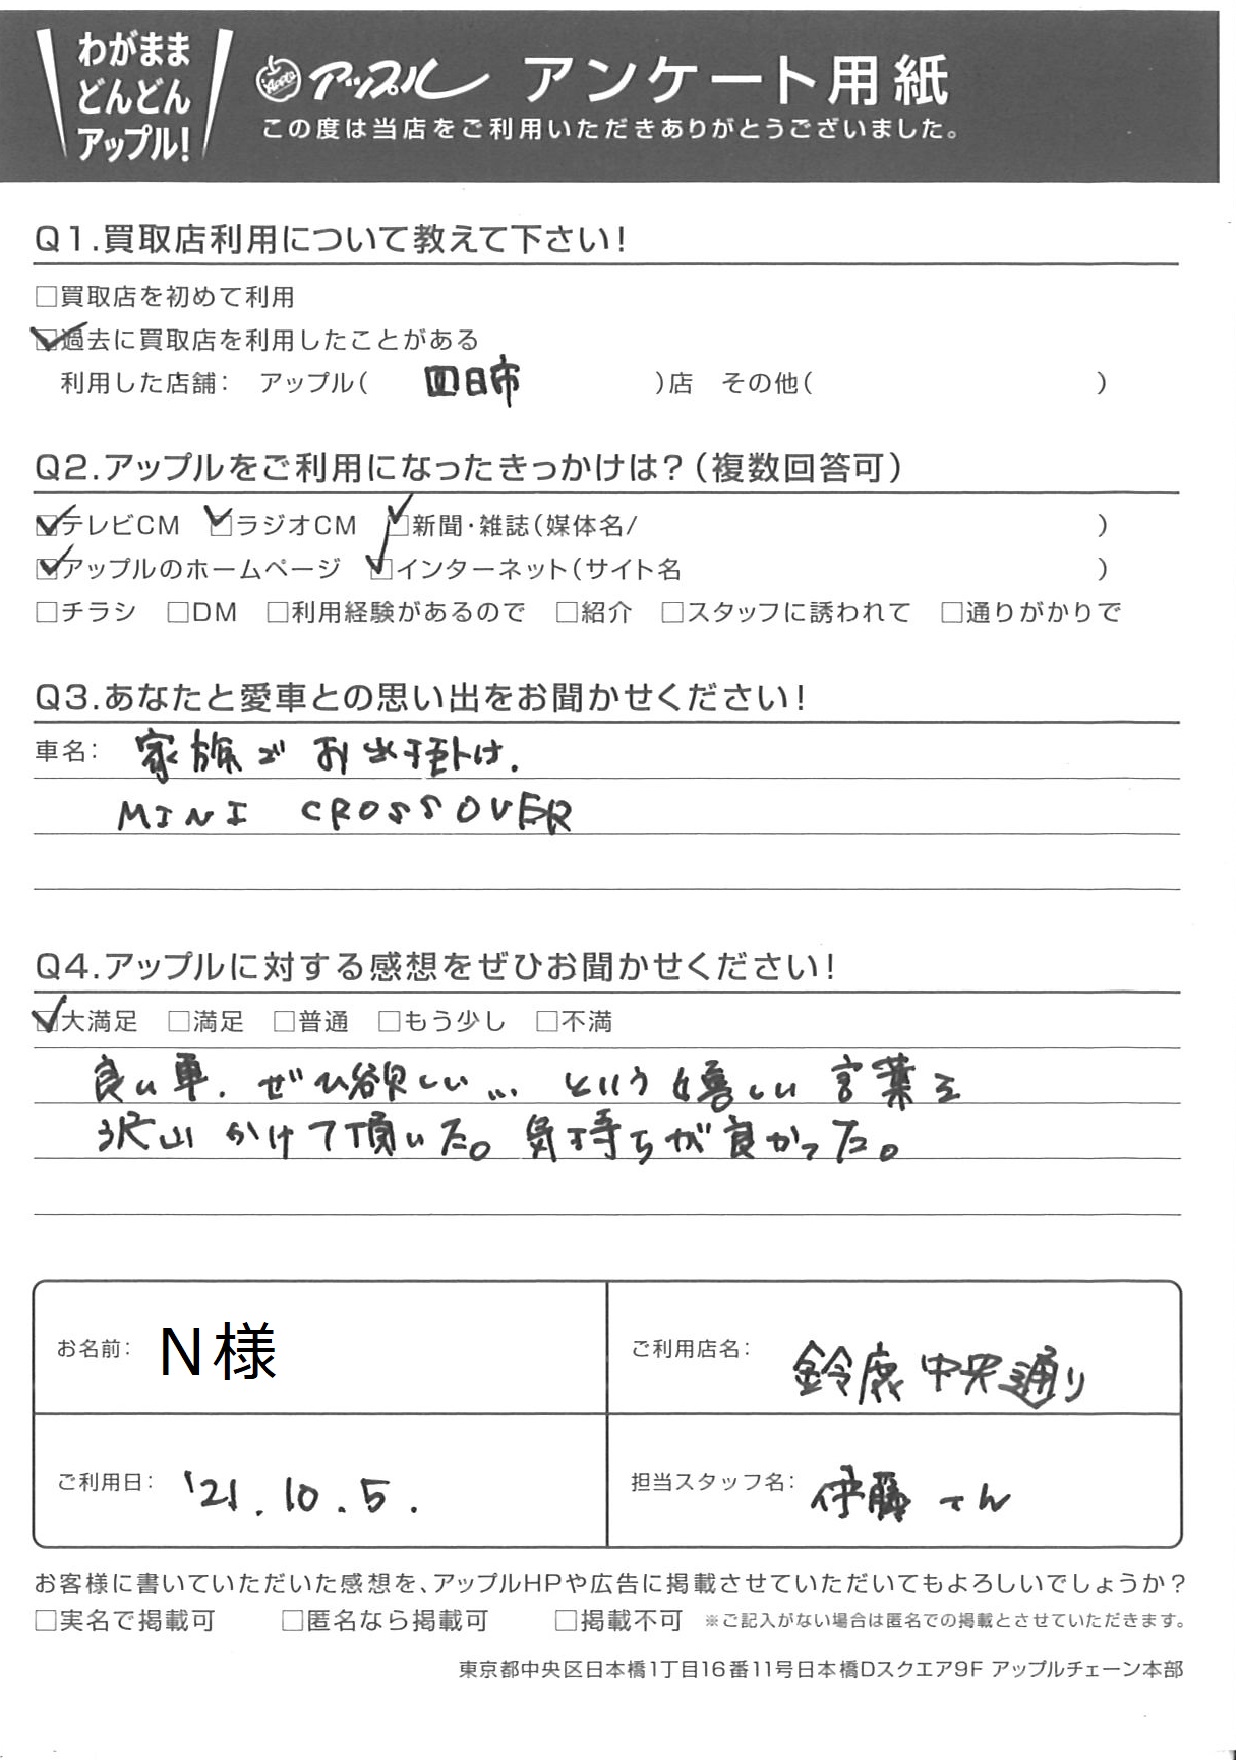 わがまま
どんどん
アップル!
Apple アップル アンケート用紙
この度は当店をご利用いただきありがとうございました。
Q1.買取店利用について教えて下さい!
□買取店を初めて利用
☑過去に買取店を利用したことがある
利用した店舗: アップル( 四日市 )店 その他( )
Q2.アップルをご利用になったきっかけは?(複数回答可)
☑テレビCM ☑ラジオCM ☑新聞・雑誌(媒体名/ )
☑アップルのホームページ ☑インターネット(サイト名 )
□チラシ □DM □利用経験があるので □紹介 □スタッフに誘われて □通りがかりで
Q3.あなたと愛車との思い出をお聞かせください!
車名: 家族でお出掛け.
MINI CROSSOVER
Q4.アップルに対する感想をぜひお聞かせください!
☑大満足 □満足 □普通 □もう少し □不満
良い車. ぜひ欲しい... という嬉しい言葉を
沢山かけて頂いた。気持ちが良かった。
お名前: N様
ご利用店名: 鈴鹿中央通り
ご利用日: '21.10.5.
担当スタッフ名: 伊藤さん
お客様に書いていただいた感想を、アップルHPや広告に掲載させていただいてもよろしいでしょうか?
□実名で掲載可 □匿名なら掲載可 □掲載不可 ※ご記入がない場合は匿名での掲載とさせていただきます。
東京都中央区日本橋1丁目16番11号日本橋Dスクエア9F アップルチェーン本部